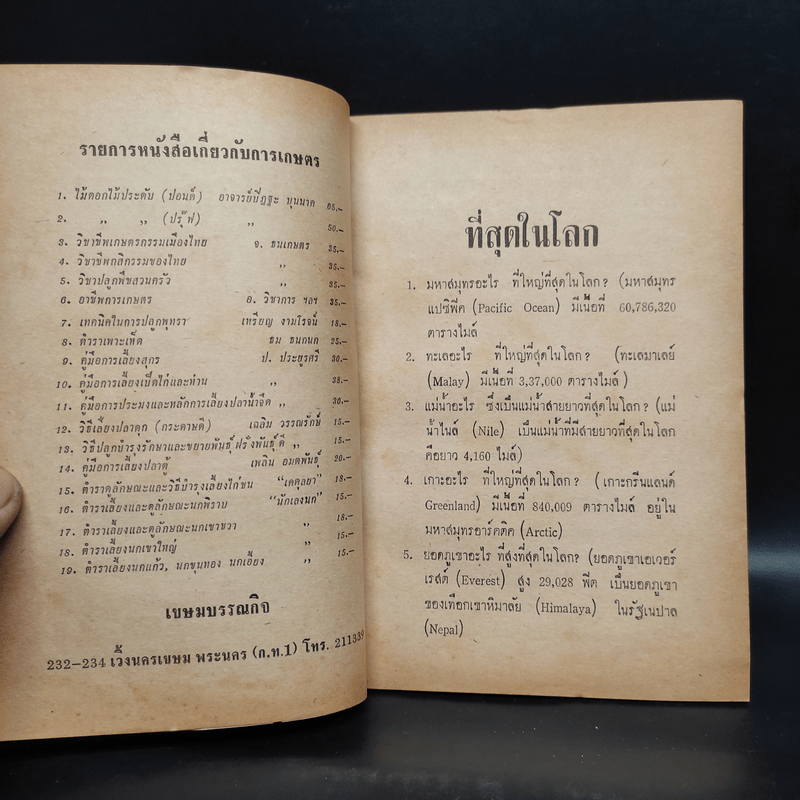 รายการหนังสือเกี่ยวกับการเกษตร
1. ไม้ดอกไม้ประดับ (ปอนด์) อาจารย์ปิฏฐะ บุนนาค 65.-
2. ,, ,, (ปรู๊ฟ) ,, 50.-
3. วิชาชีพเกษตรกรรมเมืองไทย จ. ธนเกษตร 25.-
4. วิชาชีพกสิกรรมของไทย ,, 35.-
5. วิชาปลูกพืชสวนครัว ,, 35.-
6. อาชีพการเกษตร อ. วิชาการ ฯลฯ 35.-
7. เทคนิคในการปลูกพุทรา เหรียญ งามโรจน์ 18.-
8. ตำราเพาะเห็ด ธม ธนกนก 25.-
9. คู่มือการเลี้ยงสุกร ป. ประยูรศรี 30.-
10. คู่มือการเลี้ยงเป็ดไก่และห่าน ,, 28.-
11. คู่มือการประมงและหลักการเลี้ยงปลาน้ำจืด ,, 30.-
12. วิธีเลี้ยงปลาดุก (กระดาษดี) เฉลิม วรรณรักษ์ 15.-
13. วิธีปลูกบำรุงรักษาและขยายพันธุ์ฝรั่งพันธุ์ดี ,, 15.-
14. คู่มือการเลี้ยงปลาตู้ เพลิน อมตพันธุ์ 20.-
15. ตำราดูลักษณะและวิธีบำรุงเลี้ยงไก่ชน “เคดุลยา” 18.-
16. ตำราเลี้ยงและดูลักษณะนกพิราบ “นักเลงนก” 15.-
17. ตำราเลี้ยงและดูลักษณะนกเขาชวา ,, 18.-
18. ตำราเลี้ยงนกเขาใหญ่ ,, 15.-
19. ตำราเลี้ยงนกแก้ว, นกขุนทอง นกเอี้ยง ,, 15.-
เขษมบรรณกิจ
232-234 เวิ้งนครเขษม พระนคร (ก.ท.1) โทร. 211339
ที่สุดในโลก
1. มหาสมุทรอะไร ที่ใหญ่ที่สุดในโลก? (มหาสมุทร
แปซิฟิค (Pacific Ocean) มีเนื้อที่ 60,786,320
ตารางไมล์
2. ทะเลอะไร ที่ใหญ่ที่สุดในโลก? (ทะเลมาเลย์
(Malay) มีเนื้อที่ 3,37,000 ตารางไมล์)
3. แม่น้ำอะไร ซึ่งเป็นแม่น้ำสายยาวที่สุดในโลก? (แม่
น้ำไนล์ (Nile) เป็นแม่น้ำที่มีสายยาวที่สุดในโลก
คือยาว 4,160 ไมล์)
4. เกาะอะไร ที่ใหญ่ที่สุดในโลก? (เกาะกรีนแลนด์
Greenland) มีเนื้อที่ 840,009 ตารางไมล์ อยู่ใน
มหาสมุทรอาร์คติค (Arctic)
5. ยอดภูเขาอะไร ที่สูงที่สุดในโลก? (ยอดภูเขาเอเวอร์
เรสต์ (Everest) สูง 29,028 ฟีต เป็นยอดภูเขา
ของเทือกเขาหิมาลัย (Himalaya) ในรัฐเนปาล
(Nepal)